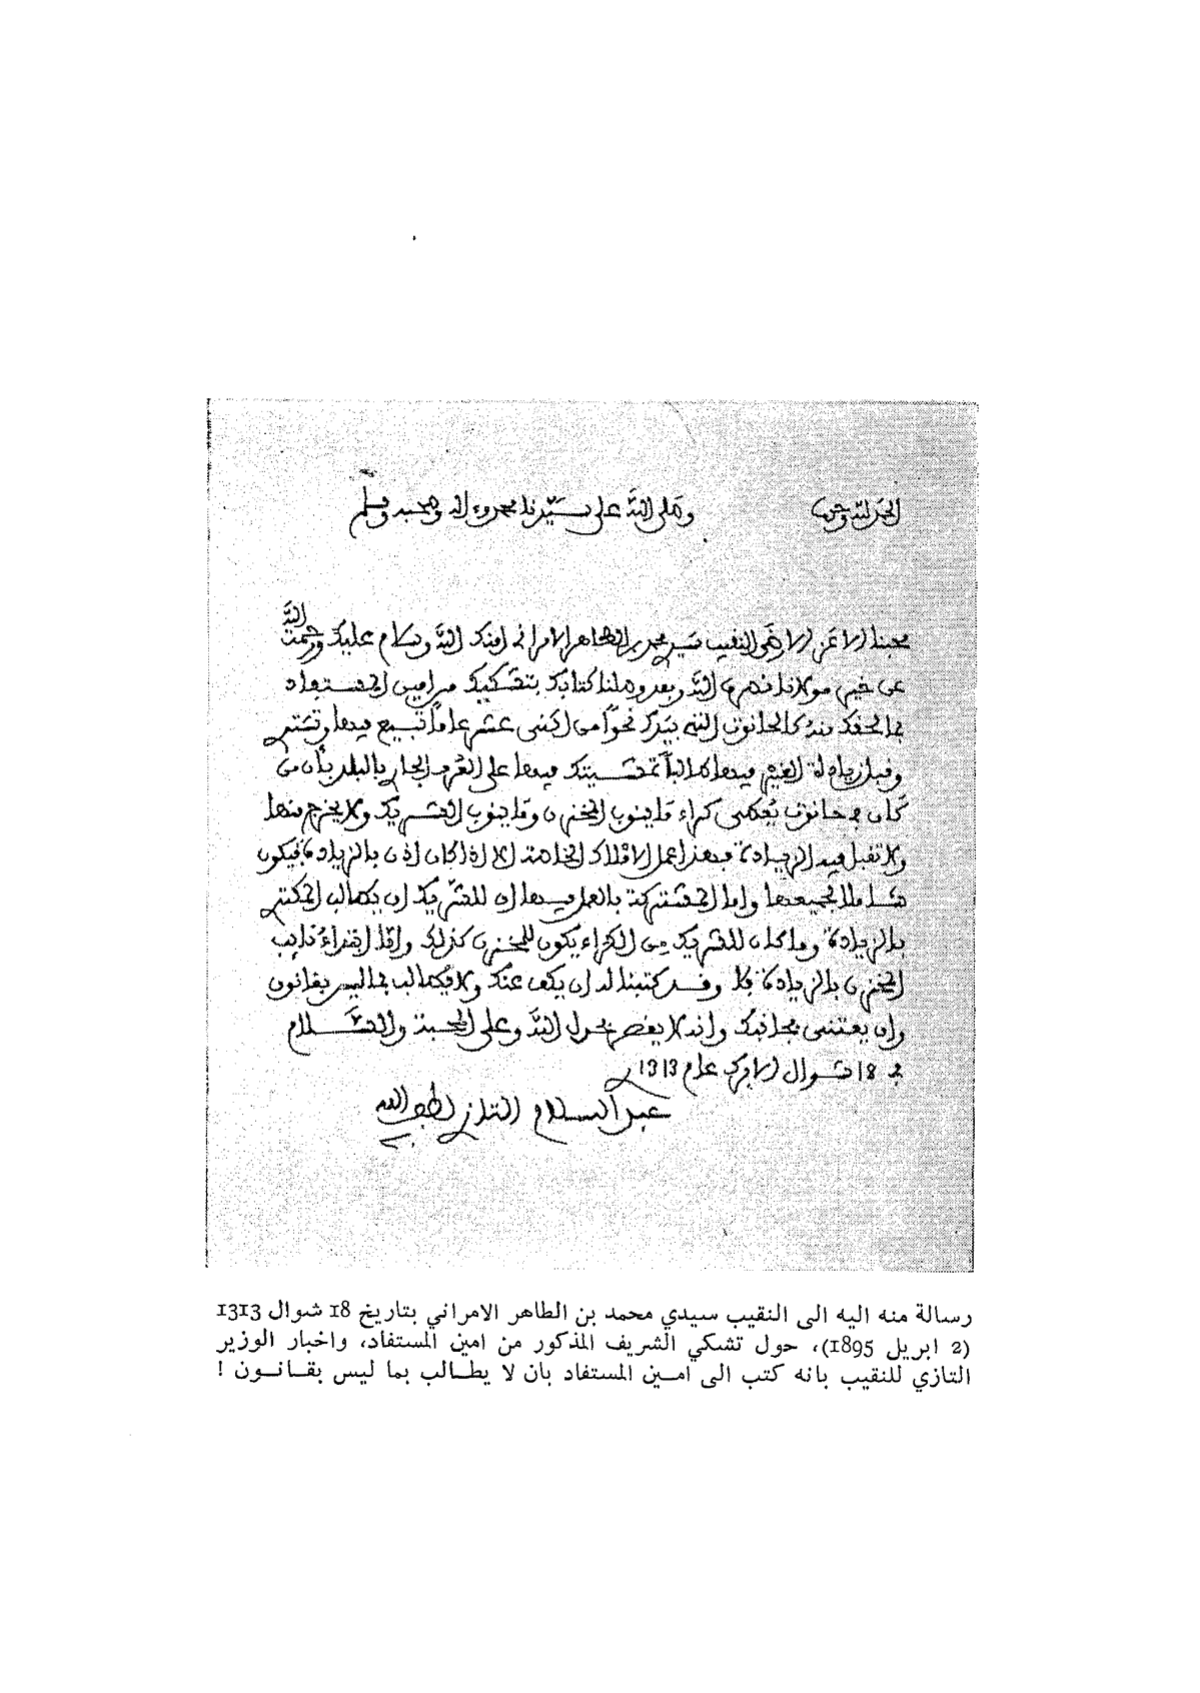 الحمد لله وحده وصلى الله على سيدنا محمد وءاله وصحبه وسلم
محبنا الاعز الارضى النقيب سيدي محمد بن الطاهر الامراني امنك الله وسلام عليك ورحمت الله
عن خير مولانا نصره الله وبعد وصلنا كتابك بتشكيك من امين المستفاد
الحانوت التي بيدك نحوا من اثنى عشر عاما تبيع فيها وتشتري
وقبل زيادة الغير فيها طالبا تمشيتك فيها على العرف الجاري بالبلد بأن من
كان بحانوت يعطى كراء ما ينوب المخزن وما ينوب الشريك ولا يخرج منها
ولا تقبل فيه الزيادة فهذا عمل الاملاك الخاصة الا اذا كان اذن بالزيادة فيكون
شاملا لجميعها واما المشتركة بالعمل فيها ان للشريك ان يطالب المكتري
بالزيادة وما كان للشريك من الكراء يكون للمخزن كذلك واما ابتداء نايب
المخزن بالزيادة فلا وقد كتبنا له ان يكف عنك ولا يطالب بما ليس بقانون
وان يعتنى بجانبك وانه لا يقصر بحول الله وعلى المحبة والسلام
في 18 شوال الابرك عام 1313
عبد السلام التازي لطف الله به
رسالة منه اليه الى النقيب سيدي محمد بن الطاهر الامراني بتاريخ 18 شوال 1313
(2 ابريل 1895)، حول تشكي الشريف المذكور من امين المستفاد، واخبار الوزير
التازي للنقيب بانه كتب الى امين المستفاد بان لا يطالب بما ليس بقانون !